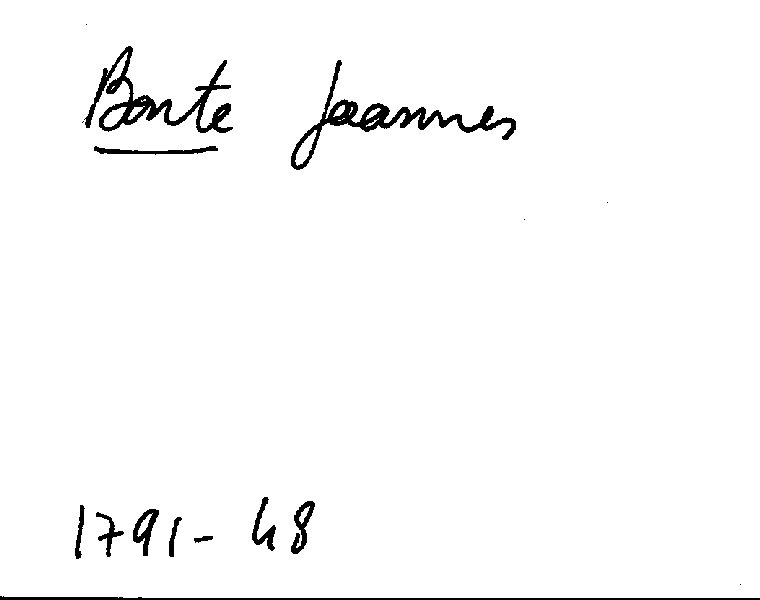 Bonte Joannes
1791- 48